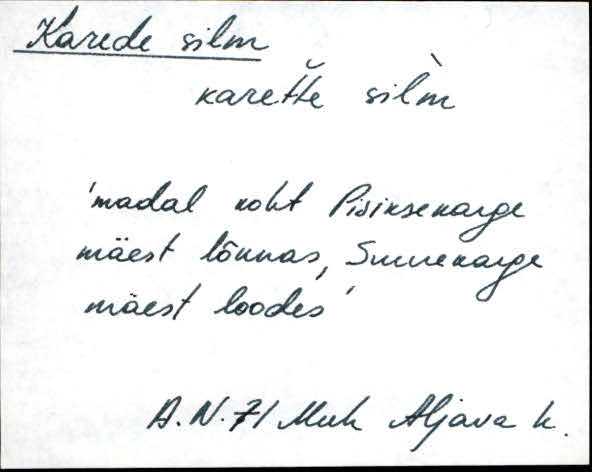 Karede silm
karĕtte sil̀m
'madal koht Pisiksekarge
mäest lõunas, Suurekarge
mäest loodes'
A.N. 71 Muh Aljava k.